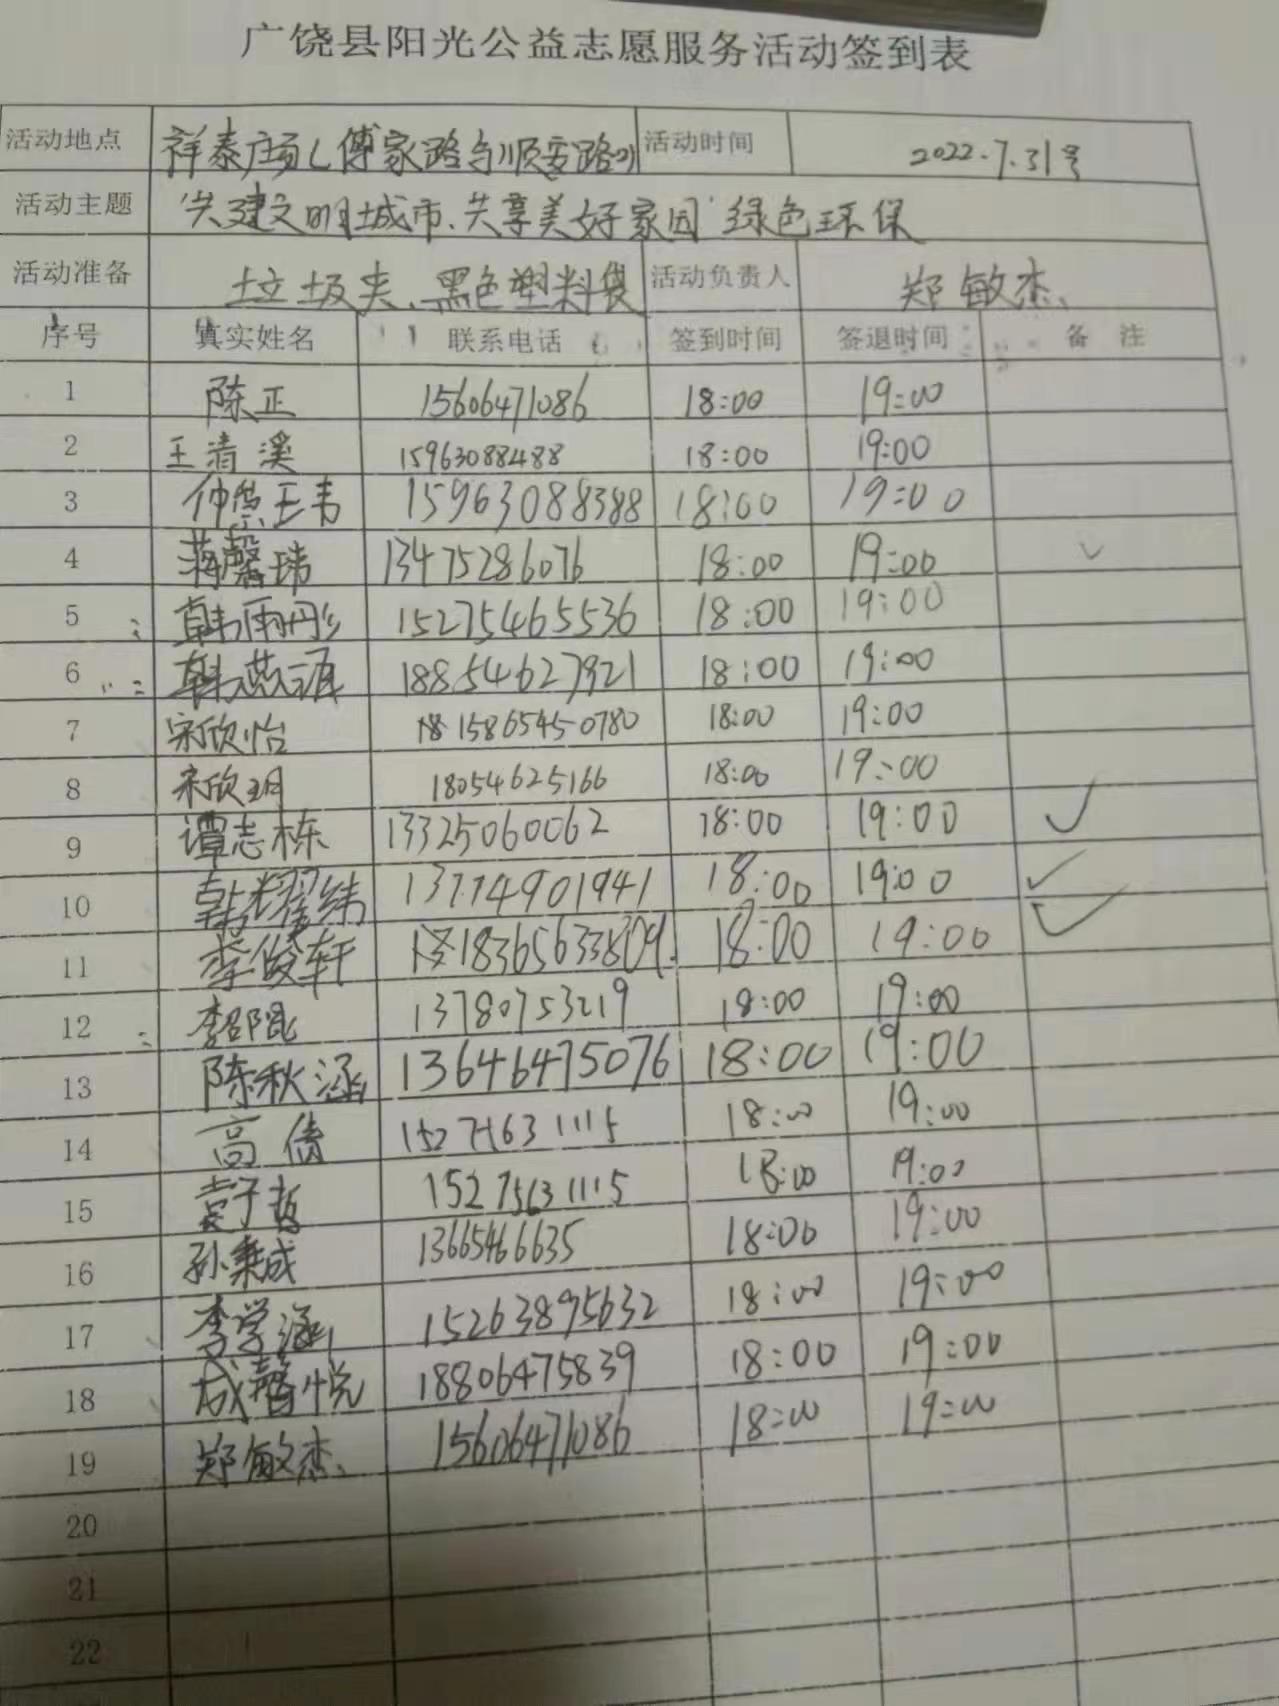 广饶县阳光公益志愿服务活动签到表
活动地点 祥泰广场(傅家路与顺安路 活动时间 2022.7.31号
活动主题 "共建文明城市、共享美好家园"绿色环保
活动准备 垃圾夹、黑色塑料袋 活动负责人 郑敏杰
序号 真实姓名 联系电话 签到时间 签退时间 备 注
1 陈正 15606471086 18:00 19:00
2 王清溪 15963088488 18:00 19:00
3 15963088388 18:00 19:00
4 蒋馨玮 13475286076 18:00 19:00 ✓
5 韩雨彤 15275465536 18:00 19:00
6 韩燕 18854627921 18:00 19:00
7 宋欣怡 15865450780 18:00 19:00
8 宋欣玥 18054625166 18:00 19:00
9 谭志栋 13325060062 18:00 19:00 ✓
10 韩耀纬 13774901941 18:00 19:00 ✓
11 李俊轩 18365633809 18:00 19:00 ✓
12 李昭昆 13780753219 18:00 19:00
13 陈秋涵 13646475076 18:00 19:00
14 高倩 15275631115 18:00 19:00
15 子哲 15275631115 18:00 19:00
16 孙秉成 13665466635 18:00 19:00
17 李学涵 15263895632 18:00 19:00
18 成馨悦 18806475839 18:00 19:00
19 郑敏杰 15606471086 18:00 19:00
20
21
22